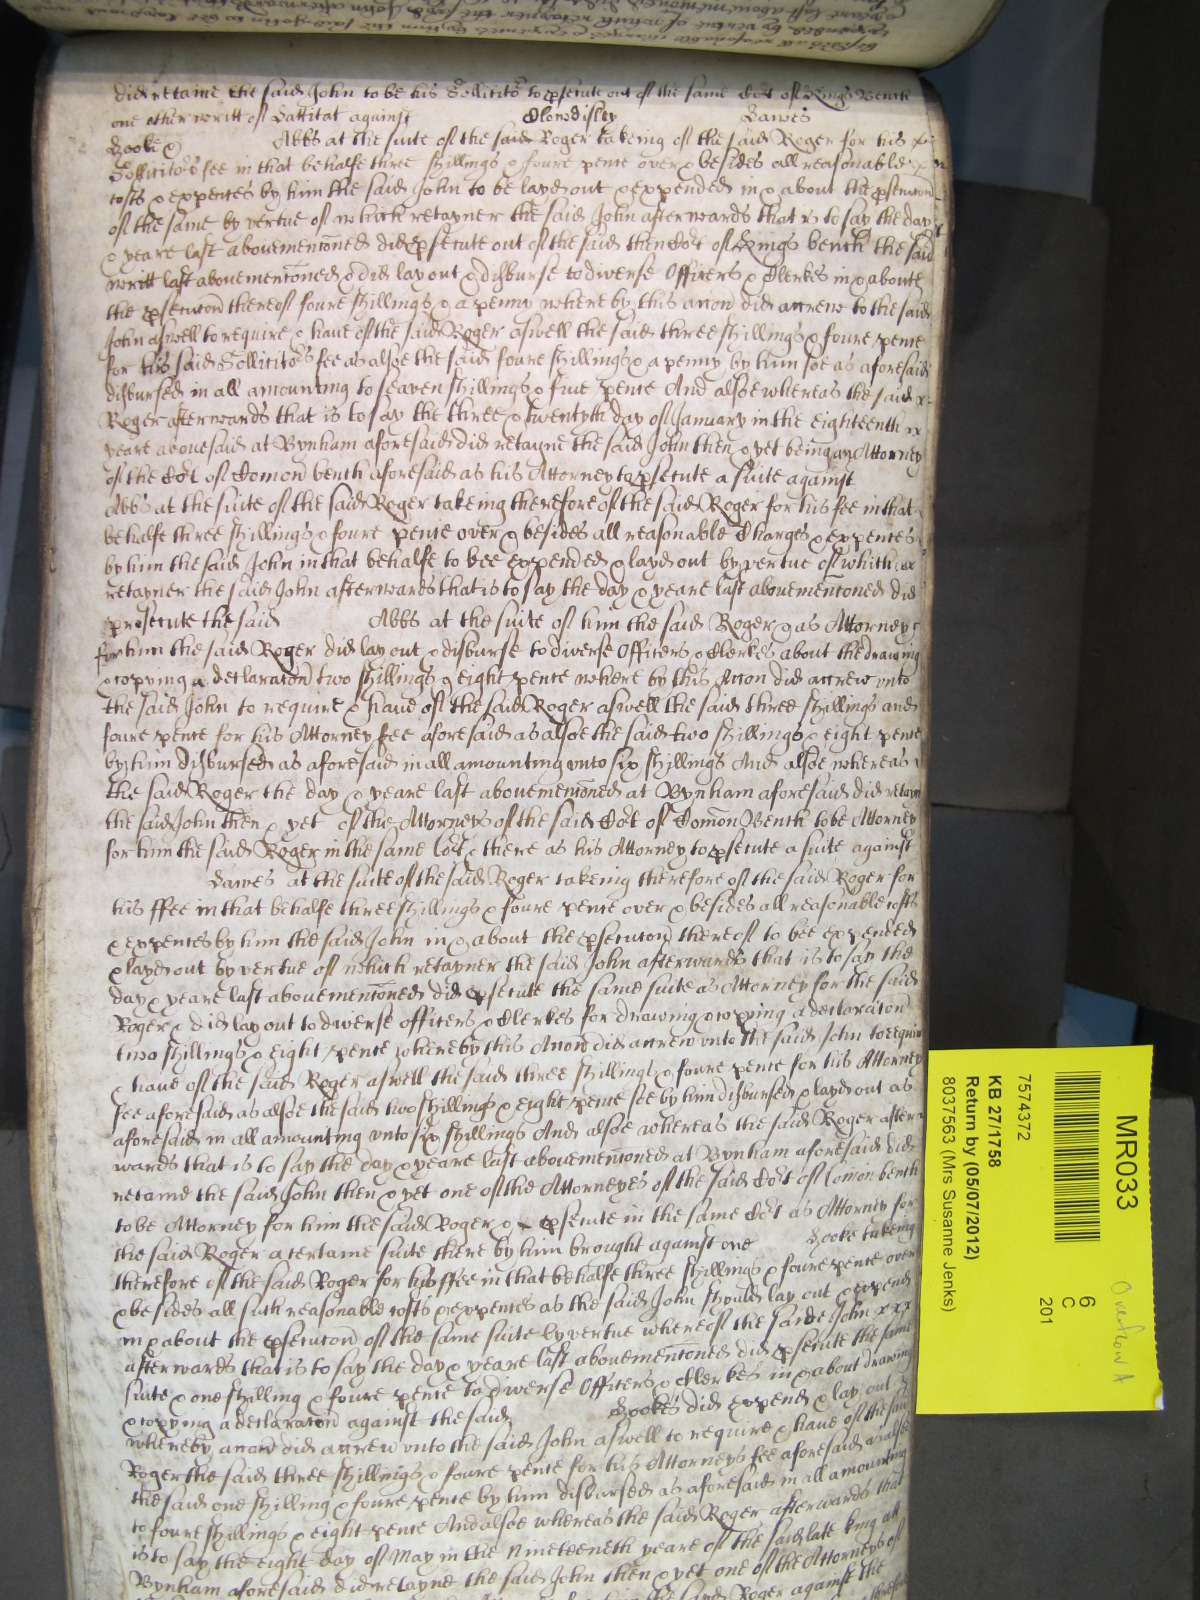 did retaine the said John to be his Sollicitor to psecute out of the same Cort of Kings Bench
one other writt of Lattitat against Clowdisley Dawes
Cooke & Abbs at the suite of the said Roger takeing of the said Roger for his
Sollicitors fee in that behalfe three shillings & foure pence over & besides all reasonable
costs & expences by him the said John to be layd out & expended in & about the psecucon
of the same by vertue of which retayner the said John afterwards that is to say the day
& yeare last abovementoned did psecute out of the said then Cort of Kings bench the said
writt last abovementoned & did lay out & disburse to diverse Officers & Clerkes in & aboute
the psecucon thereof foure shillings & a penny whereby this accon did accrew to the said
John aswell to require & have of the said Roger aswell the said three shillings & foure pence
for his said Sollicitors fee as alsoe the said foure shillings & a penny by him soe as aforesaid
disbursed in all amounting to seaven shillings & five pence And alsoe whereas the said
Roger afterwards that is to say the three & twentyth day of January in the eighteenth
yeare abovesaid at Bynham aforesaid did retayne the said John then & yet being an Attorney
of the Cort of Comon bench aforesaid as his Attorney to psecute a suite against
Abbs at the suite of the said Roger takeing therefore of the said Roger for his fee in that
behalfe three shillings & foure pence over & besides all reasonable Charges & expences
by him the said John in that behalfe to bee expended & layd out by vertue of which
retayner the said John afterwards that is to say the day & yeare last abovementoned did
prosecute the said Abbs at the suite of him the said Roger & as Attorney
for him the said Roger did lay out & disburse to diverse Officers & Clerkes about the drawing
& copying a declaracon two shillings & eight pence whereby this Accon did accrew unto
the said John to require & have of the said Roger aswell the said three shillings and
foure pence for his Attorney fee aforesaid as alsoe the said two shillings & eight pence
by him disbursed as aforesaid in all amounting unto six shillings And alsoe whereas
the said Roger the day & yeare last abovementoned at Bynham aforesaid did retayn
the said John then & yet of the Attorneys of the said Cort of Comon Bench to be Attorney
for him the said Roger in the same Cort & there as his Attorney to psecute a suite against
Dawes at the suite of the said Roger takeing therefore of the said Roger for
his ffee in that behalfe three shillings & foure pence over & besides all reasonable costs
& expences by him the said John in & about the psecucon thereof to bee expended
& layd out by vertue of which retayner the said John afterwards that is to say the
day & yeare last abovementoned did psecute the same suite as Attorney for the said
Roger & did lay out to diverse officers & Clerkes for drawing & copying a declaracon
two shillings & eight pence whereby this Accon did accrew unto the said John to require
& have of the said Roger aswell the said three shillings & foure pence for his Attorney
fee aforesaid as alsoe the said two shillings & eight pence soe by him disbursed & layd out as
aforesaid in all amounting unto six shillings And alsoe whereas the said Roger after
wards that is to say the day & yeare last abovementoned at Bynham aforesaid did
retaine the said John then & yet one of the Attorneyes of the said Cort of Comon bench
to be Attorney for him the said Roger & psecute in the same Cort as Attorney for
the said Roger a certaine suite there by him brought against one Cooke takeing
therefore of the said Roger for his ffee in that behalfe three shillings & foure pence over
& besides all such reasonable costs & expences as the said John should lay out & expend
in & about the psecucon of the same suite by vertue whereof the saide John
afterwards that is to say the day & yeare last abovementoned did psecute the same
suite & one shilling & foure pence to diverse Officers & Clerkes in & about drawing
& copying a declaracon against the said Cookes did expend & lay out
whereby accon did accrew unto the said John aswell to require & have of the said
Roger the said three shillings & foure pence for his Attorneys fee aforesaid as alsoe
the said one shilling & foure pence by him disbursed as aforesaid in all amounting
to foure shillings & eight pence And alsoe whereas the said Roger afterwards that
is to say the eight day of May in the Nineteenth yeare of the said late King att
Bynham aforesaid did retayne the said John then & yet one of the Attorneys of
the said Roger against the
MR033
6
C
201
7574372
KB 27/1758
Return by (05/07/2012)
8037563 (Mrs Susanne Jenks)